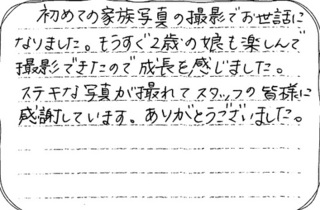 初めての家族写真の撮影でお世話に
なりました。もうすぐ2歳の娘も楽しんで
撮影できたので成長を感じました。
ステキな写真が撮れてスタッフの皆様に
感謝しています。ありがとうございました。